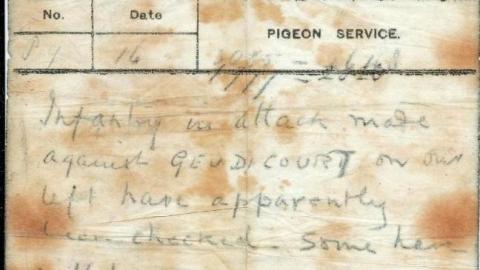 No.
Date
PIGEON SERVICE.
16
Infantry in attack made
against GEUDICOURT on our
left have apparently
been checked. Some have